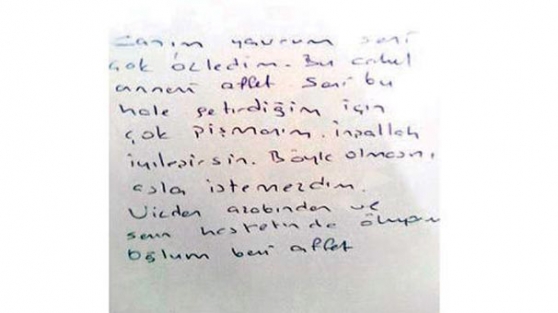 Canım yavrum seni
çok özledim. Bu cahil
anneni affet Seni bu
hale getirdiğim için
çok pişmanım. inşallah
iyileşirsin. Böyle olmasını
asla istemezdim.
Vicdan azabından ve
senin hasretinde ölüyorum
Oğlum beni affet